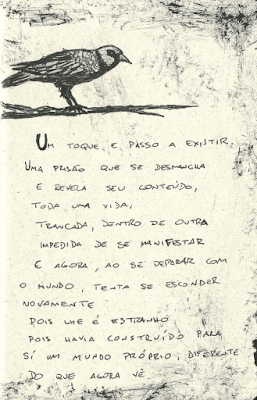 Um toque e passo a existir.
Uma prisão que se desmancha
e revela seu conteúdo,
toda uma vida,
trancada, dentro de outra
impedida de se manifestar
E agora, ao se deparar com
o mundo, tenta se esconder
novamente
pois lhe é estranho
pois havia construído para
sí um mundo próprio, diferente
do que agora vê